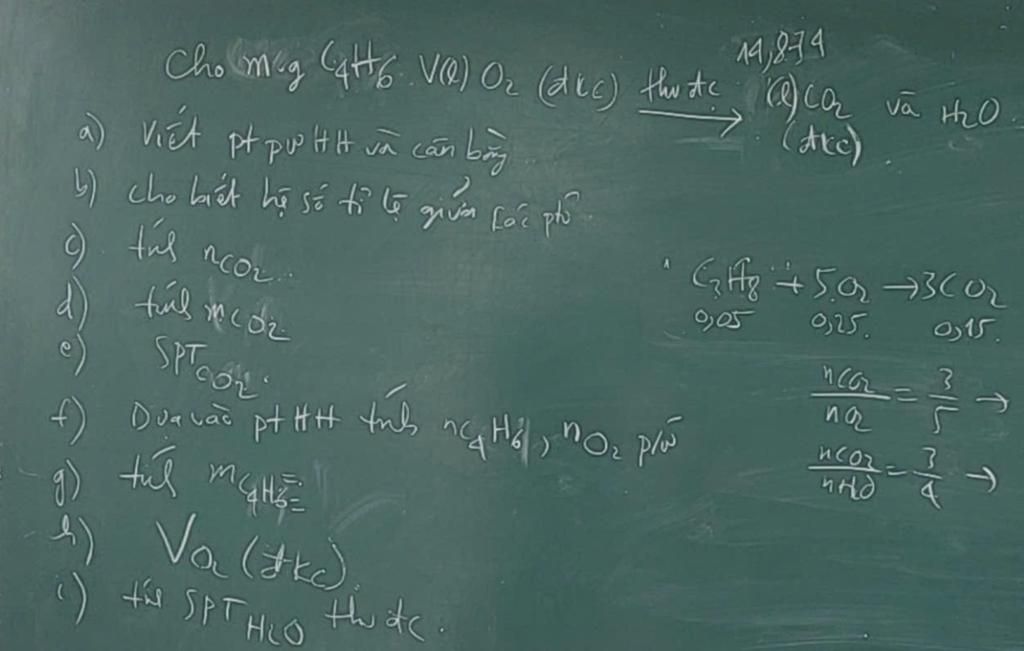 Cho m g C4H6. V(l) O2 (đkc) thu đc → 14,874 (l) CO2 (đkc) và H2O.
a) Viết pt pư HH và cân bằng.
b) cho biết hệ số tỉ lệ giữa các
c) tính nCO2..
d) tính mCO2.
e) SPT CO2.
f) Dựa vào pt HH tính nC4H6, nO2 pứ
g) tính mC4H6
h) VO2 (đkc).
i) tính SPT H2O thu đc.
C3H8 + 5O2 → 3CO2
0,05 0,25. 0,15.
nCO2/nO2 = 3/5 →
nCO2/nH2O = 3/4 →